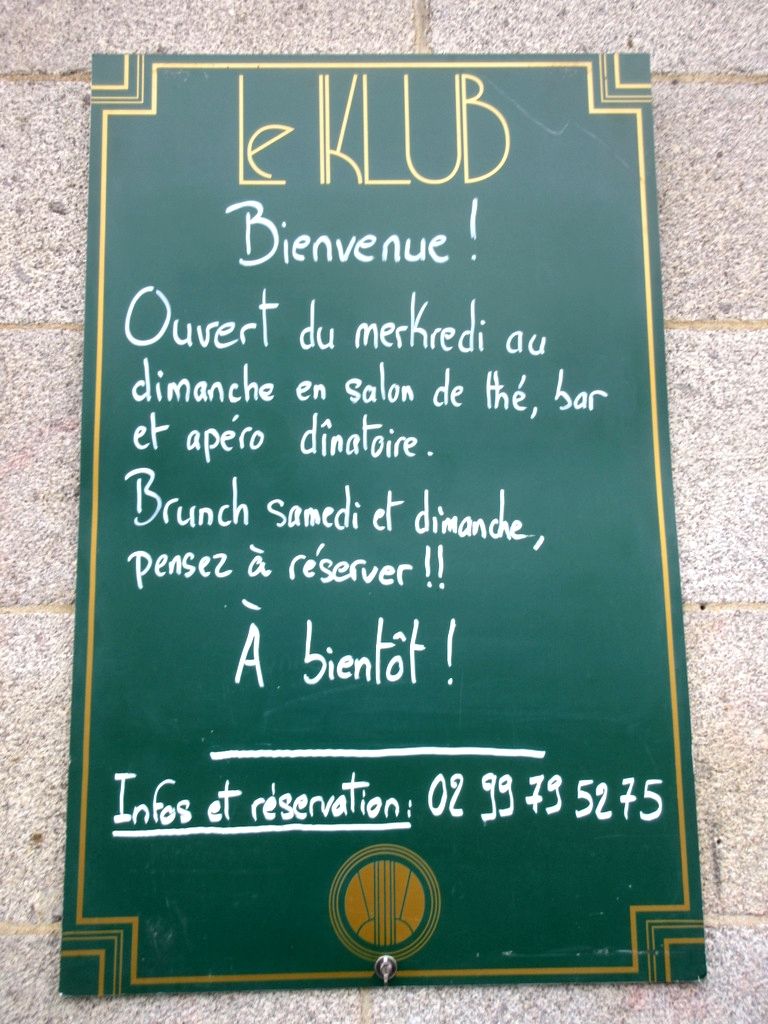 Le KLUB
Bienvenue !
Ouvert du merKredi au
dimanche en salon de thé, bar
et apéro dînatoire.
Brunch samedi et dimanche,
pensez à réserver !!
À bientôt !
Infos et réservation : 02 99 79 52 75